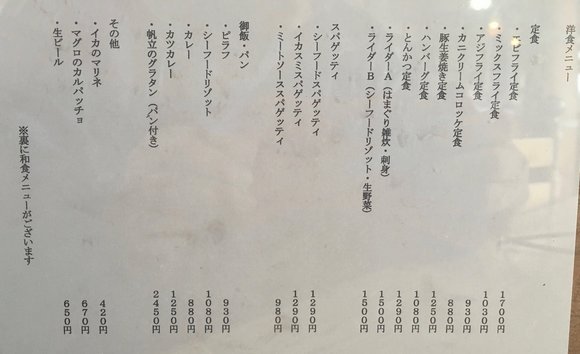 洋食メニュー
定食
・エビフライ定食　1700円
・ミックスフライ定食　1030円
・アジフライ定食　930円
・カニクリームコロッケ定食　880円
・豚生姜焼き定食　1250円
・ハンバーグ定食　1080円
・とんかつ定食　1290円
・ライダーA（はまぐり雑炊・刺身）　1500円
・ライダーB（シーフードリゾット・生野菜）　1500円
スパゲッティ
・シーフードスパゲッティ　1290円
・イカスミスパゲッティ　1290円
・ミートソーススパゲッティ　980円
御飯・パン
・ピラフ　930円
・シーフードリゾット　1080円
・カレー　880円
・カツカレー　1250円
・帆立のグラタン（パン付き）　2450円
その他
・イカのマリネ　420円
・マグロのカルパッチョ　670円
・生ビール　650円
※裏に和食メニューがございます